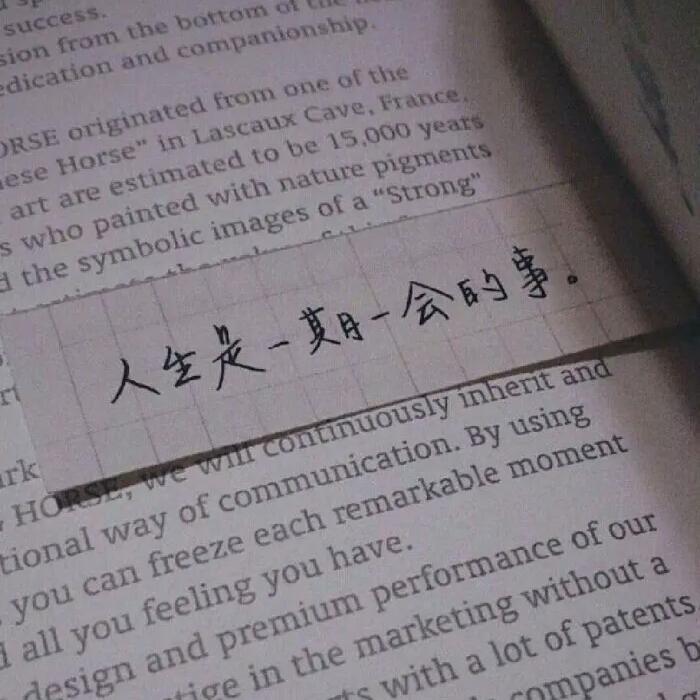 success.
from the bottom of the
and companionship.
originated from one of the
Horse" in Lascaux Cave, France.
art are estimated to be 15,000 years
who painted with nature pigments
the symbolic images of a "Strong"
人生是一期一会的事。
HORSE, we will continuously inherit and
way of communication. By using
you can freeze each remarkable moment
all you feeling you have.
design and premium performance of our
in the marketing without a
with a lot of patents
companies